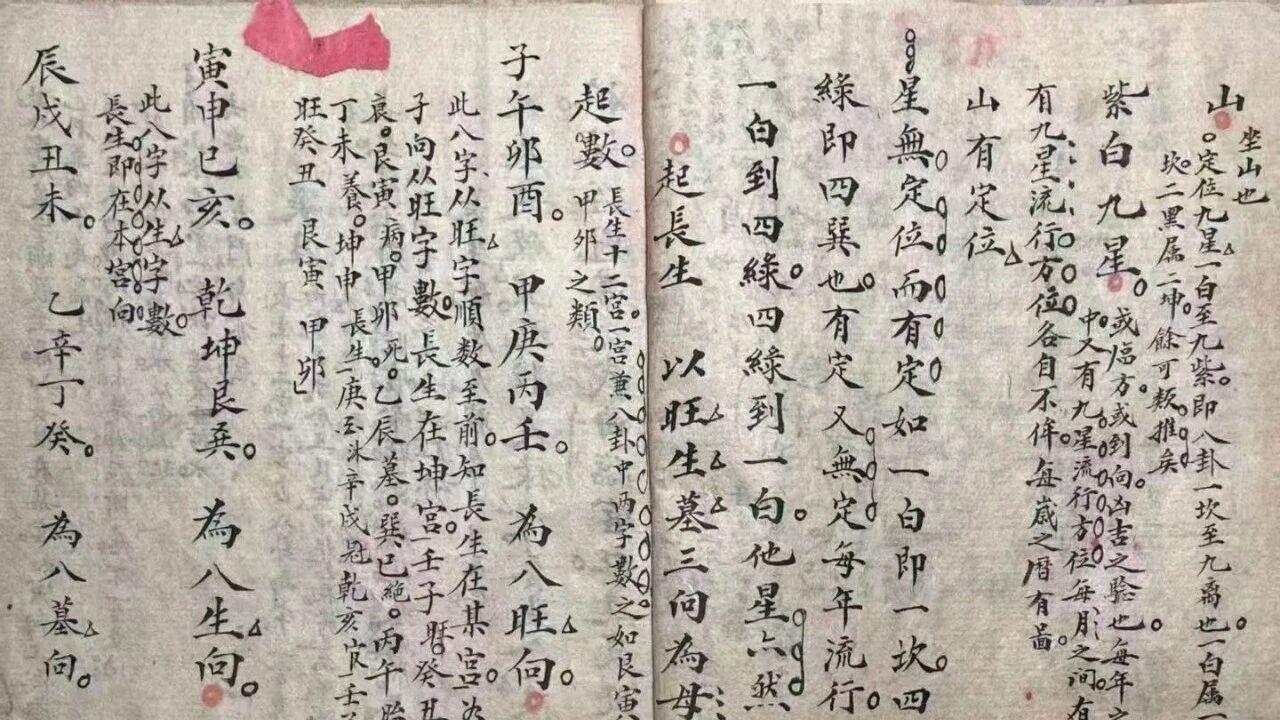 山
坐山也
定位九星一白至九紫即八卦一坎至九离也一白属
坎二黑属二坤餘可类推矣
紫白九星
或臨方或到向凶吉之驗也每年之
中又有九星流行方位每月之间有
有九星流行方位各自不侔每歲之曆有啚
山有定位
星無定位而有定如一白即一坎四
綠即四巽也有定又無定每年流行
一白到四綠四綠到一白他星亦然
起長生 以旺生墓三向為母
起數
長生十二宮一宮兼八卦中两字數之如艮寅
甲卯之類
子午卯酉 甲庚丙壬 為八旺向
此八字从旺字順数至前知長生在某宮
子向从旺字數長生在坤宮壬子旺癸丑
衰艮寅病甲卯死乙辰墓巽巳絕丙午胎
丁未養坤申長生庚酉沐辛戌冠乾亥官壬子
旺癸丑 艮寅 甲卯
寅申巳亥 乾坤艮巽 為八生向
此八字从生字數
長生即在本宮向
辰戌丑未 乙辛丁癸 為八墓向